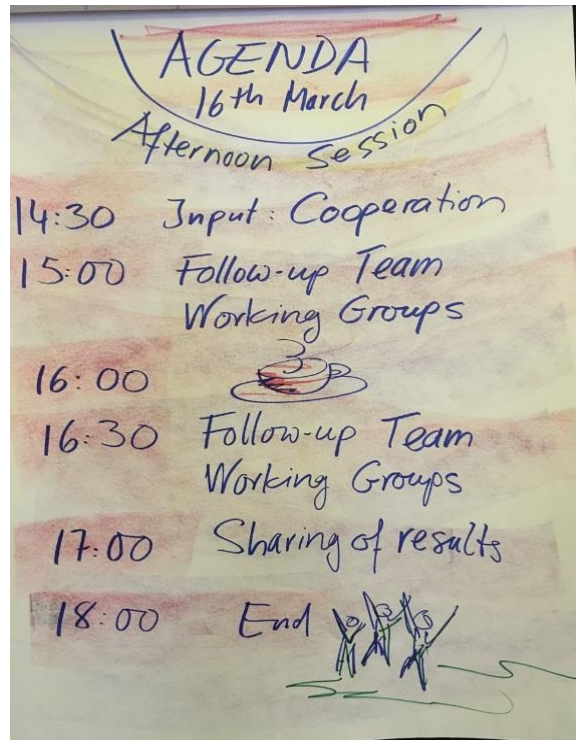 AGENDA
16th March
Afternoon Session
14:30 Input: Cooperation
15:00 Follow-up Team
Working Groups
16:00
16:30 Follow-up Team
Working Groups
17:00 Sharing of results
18:00 End